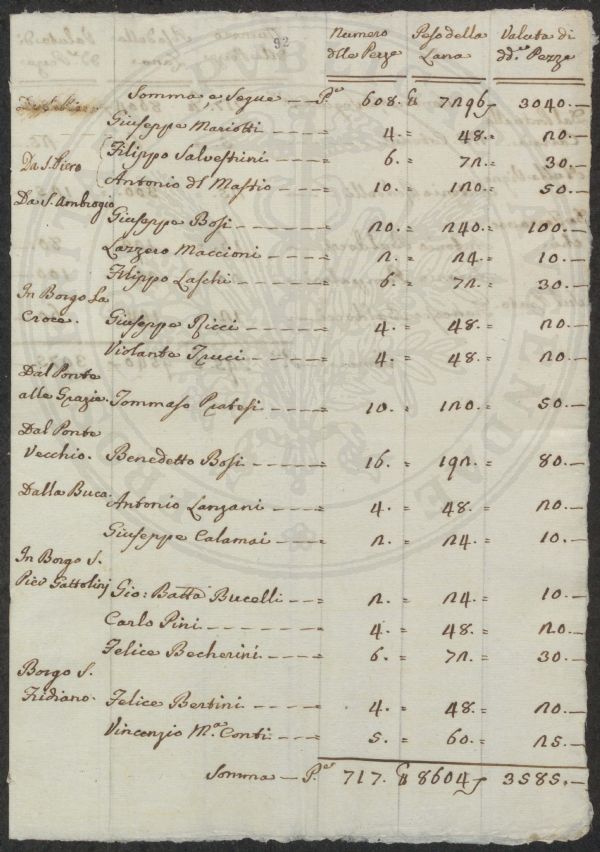 92
Numero dlle Pezze | Peso della Lana | Valuta di dd.e Pezze
Somma, e Segue — P.ze 608. ℔ 7296 3040.—
Giuseppe Mariotti — 4. = 48. = 20.—
Da S. Piero Filippo Salvestrini — 6. = 72. = 30.—
Antonio dl Mastio — 10. = 120. = 50.—
Da S. Ambrogio
Giuseppe Bosi — 20. = 240. = 100.—
Lazzero Maccioni — 2. = 24. = 10.—
Filippo Laschi — 6. = 72. = 30.—
In Borgo La
Croce. Giuseppe Ricci — 4. = 48. = 20.—
Violante — 4. = 48. = 20.—
Dal Ponte
alle Grazie. Tommaso Pratesi — 10. = 120. = 50.—
Dal Ponte
Vecchio. Benedetto Bosi — 16. = 192. = 80.—
Dalla Buca. Antonio Lanzani — 4. = 48. = 20.—
Giuseppe Calamai — 2. = 24. = 10.—
In Borgo S.
Pier Gattolinj Gio: Batta Bucelli — 2. = 24. = 10.—
Carlo Pini — 4. = 48. = 20.—
Felice Becherini — 6. = 72. = 30.—
Borgo S.
Fridiano. Felice Bertini — 4. = 48. = 20.—
Vincenzio M.a Conti — 5. = 60. = 25.—
Somma — P.ze 717. ℔ 8604 3585.—